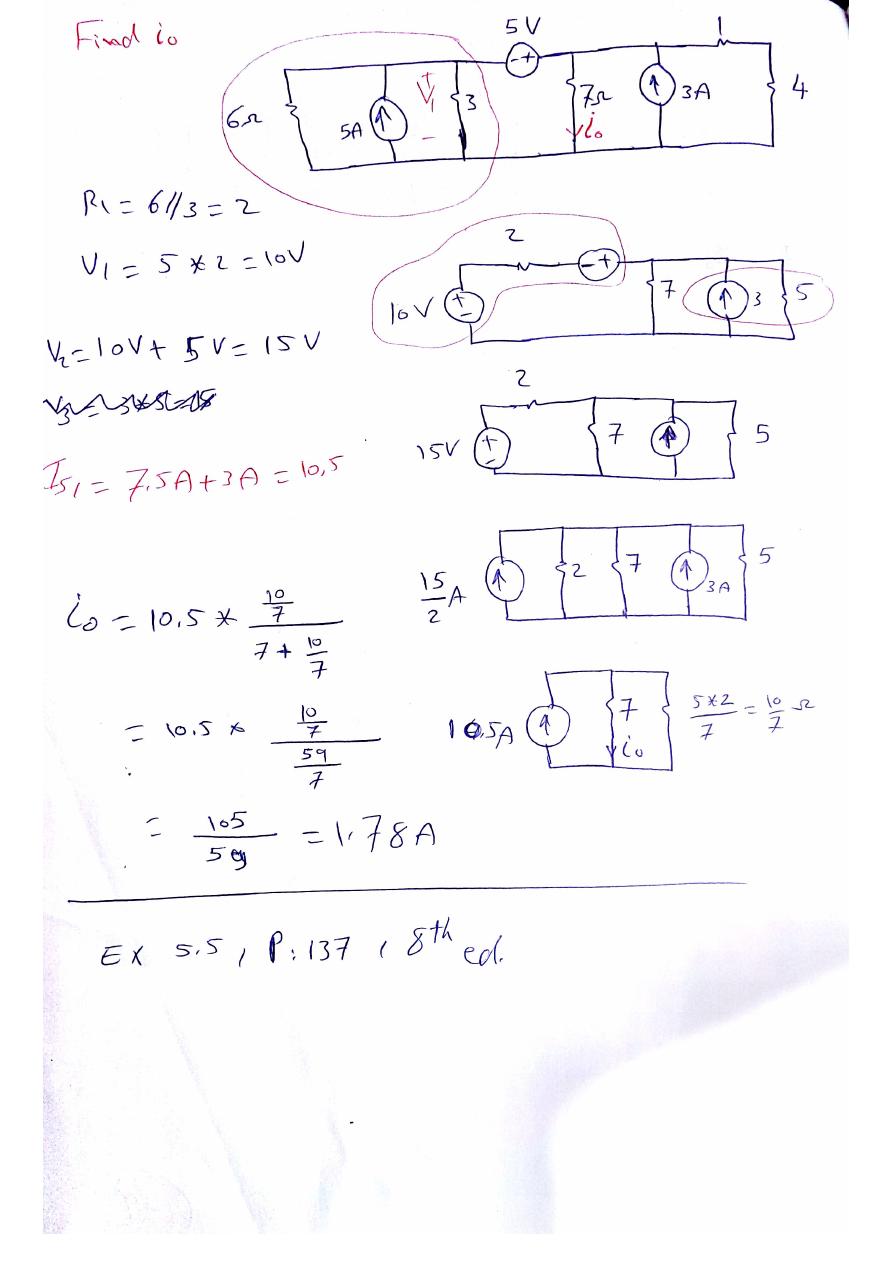 Find io
5V
1
6Ω
5A
+
V1
-
3
-+
7Ω
io
3A
4
R1 = 6//3 = 2
V1 = 5 * 2 = 10V
2
-+
10V
+
-
7
3
5
V2 = 10V + 5V = 15V
2
15V
+
-
7
5
Is1 = 7.5A + 3A = 10,5
15/2 A
2
7
3A
5
io = 10.5 * (10/7)/(7 + 10/7)
10.5A
7
io
5*2/7 = 10/7 Ω
= 10.5 * (10/7)/(59/7)
= 105/59 = 1.78A
EX 5.5, P: 137, 8th ed.